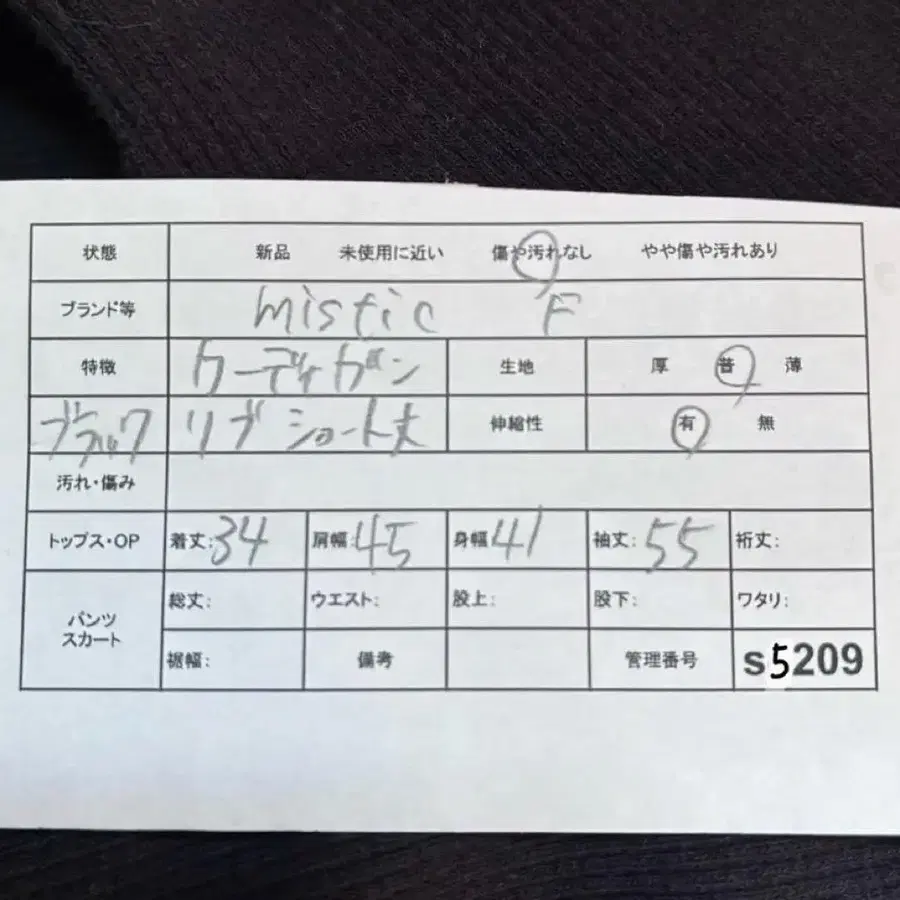 状態 新品 未使用に近い 傷や汚れなし やや傷や汚れあり
ブランド等 mistic F
特徴 カーディガン 生地 厚 普 薄
ブラック リブ ショート丈 伸縮性 有 無
汚れ・傷み
トップス・OP 着丈:34 肩幅:45 身幅41 袖丈:55 裄丈:
パンツ スカート 総丈: ウエスト: 股上: 股下: ワタリ:
裾幅: 備考 管理番号 s5209